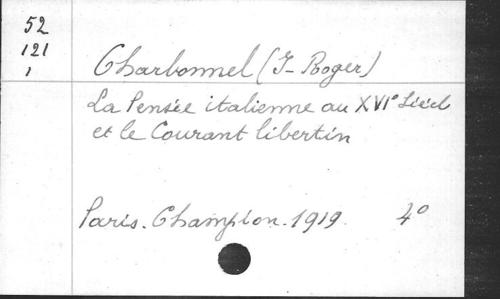 52
121
1
Charbonnel (J-Roger)
La Pensée italienne au XVIe Siècle
et le Courant libertin
Paris. Champion. 1919. 4°